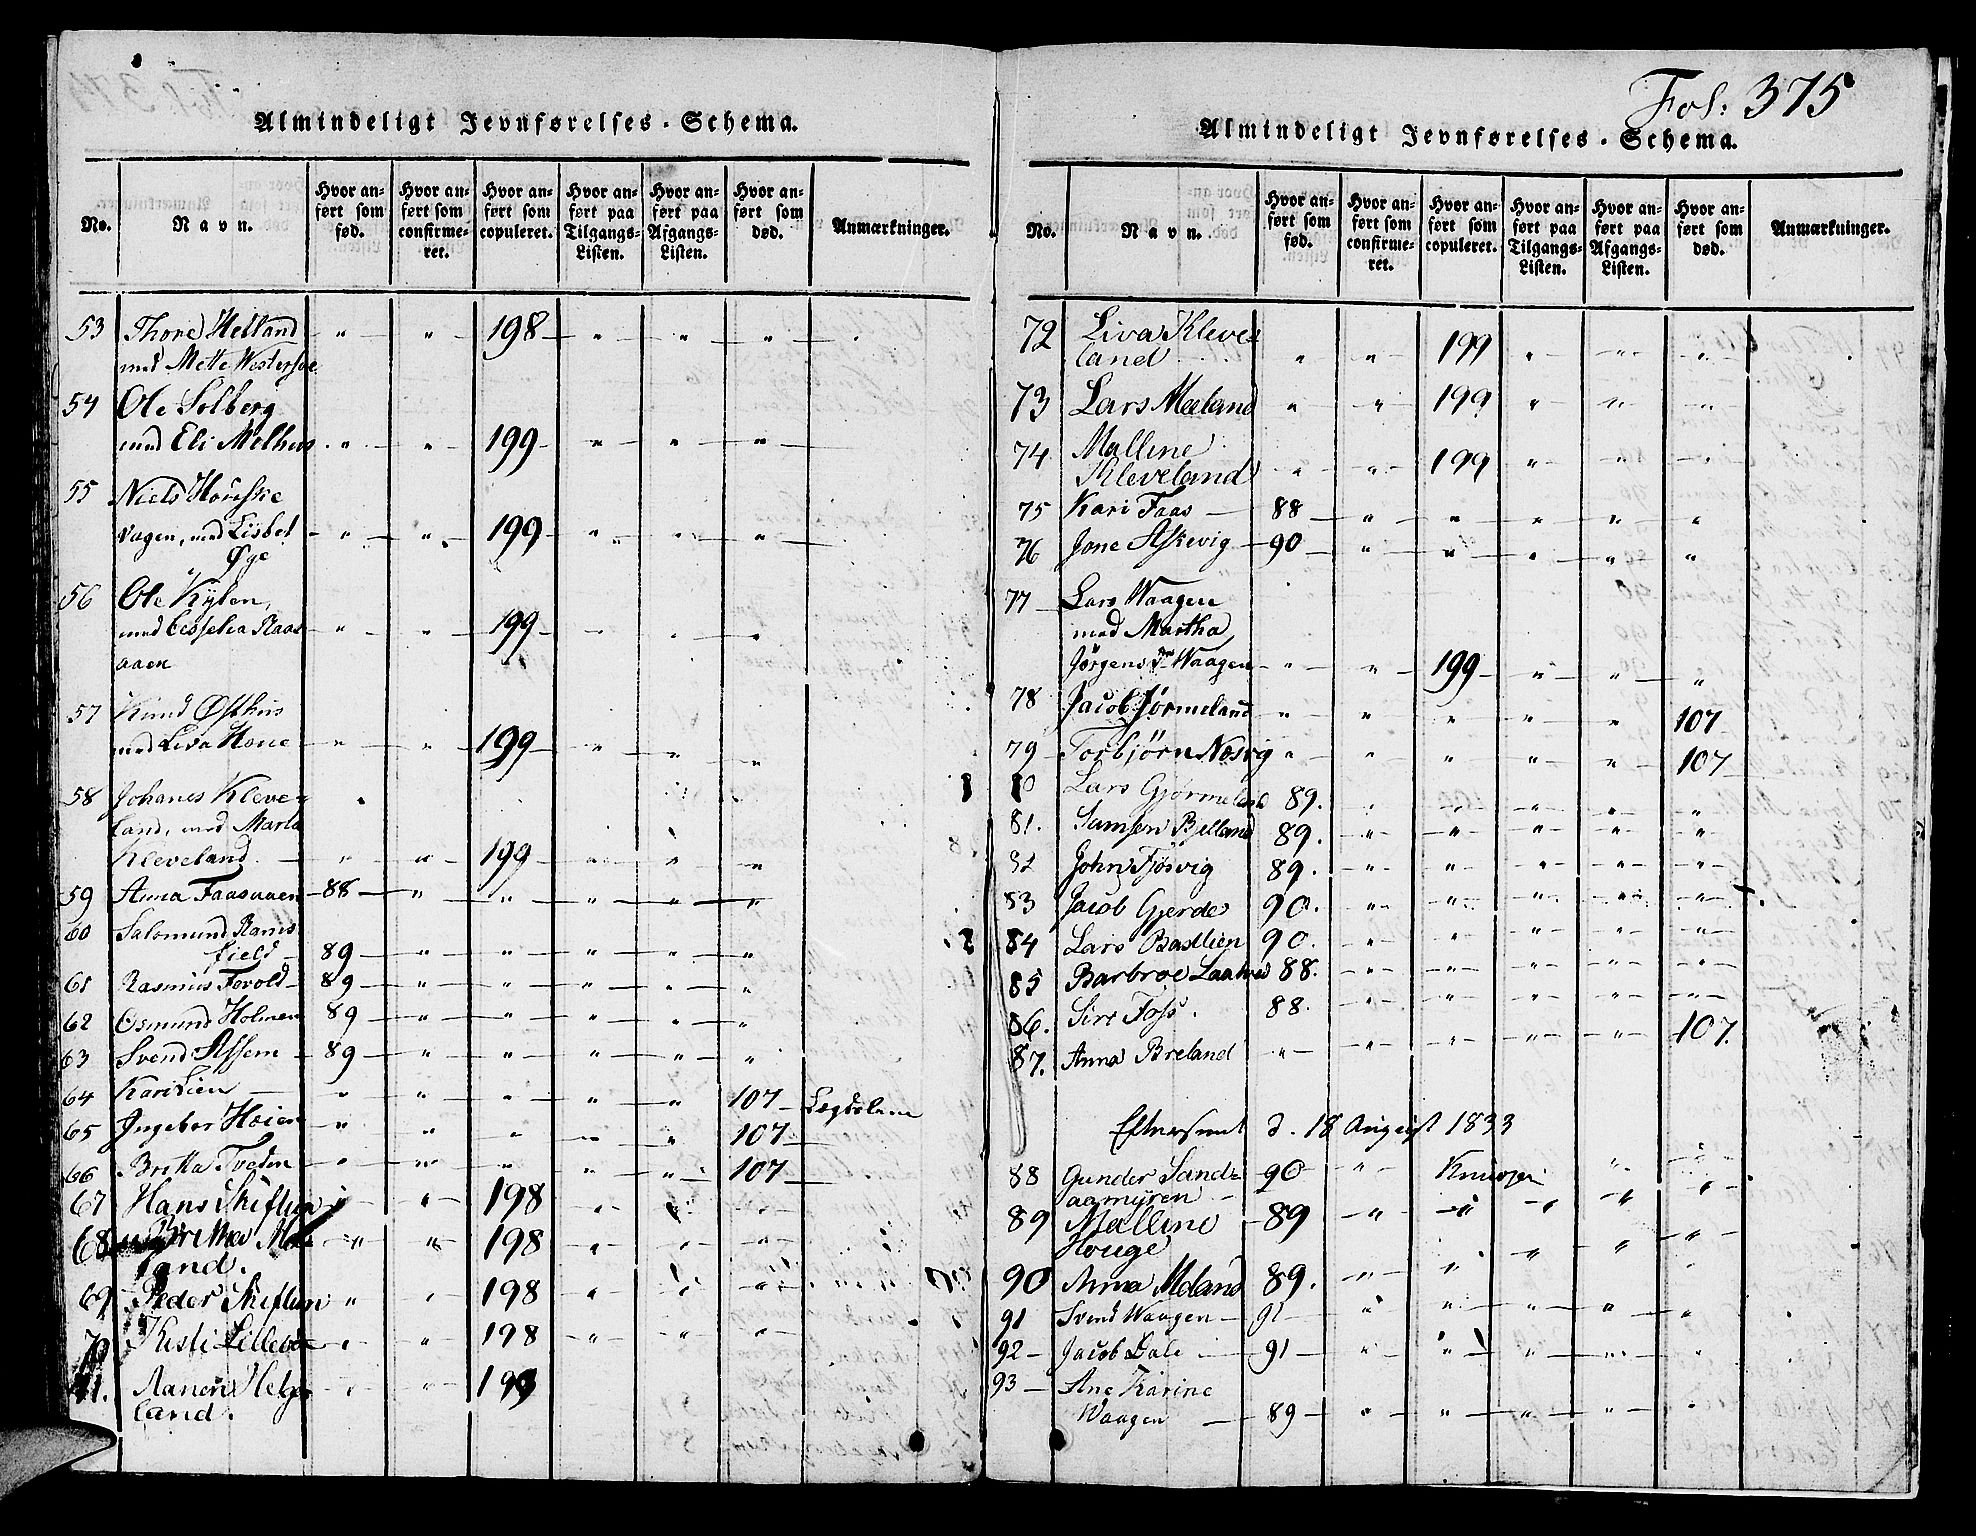 Fol: 375
Almindeligt Jevnførelses-Schema.
No. Navn. Hvor anført som fød. Hvor anført som confirmeret. Hvor anført som copuleret. Hvor anført paa Tilgangs-Listen. Hvor anført paa Afgangs-Listen. Hvor anført som død. Anmærkninger.
53 Thore Helland " " 198 " " "
med Mette Westersøe
54 Ole Solberg
med Eli Melhus " " 199 " " "
55 Niels Houske
vagen, med Lisbet " " 199 " " "
Øye
56 Ole Kylen,
med Cisselia Raas " " 199 " " "
aaen
57 Knud Østhus
med Liva Houe " " 199 " " "
58 Johanes Kleve
land, med Marta
Kleveland " " 199 " " "
59 Anna Faasaaen 88 " " " " "
60 Salomund Rams
field 89 " " " " "
61 Rasmus Tovold 89 " " " " "
62 Osmund Holmen 89 " " " " "
63 Svend Assem 89 " " " " "
64 Kari Lien " " " " " 107 Lægdslem
65 Ingebor Hoien " " " " " 107
66 Britta Tveden " " " " " 107
67 Hans Skiftun " " 198 " " "
68 Britha Mæ " " 198 " " "
land.
69 Peder Skiftun " " 198 " " "
70 Kisti Lillebøe " " 198 " " "
71. Aanen Helge " " 199 " " "
land.
Almindeligt Jevnførelses-Schema.
No. Navn. Hvor anført som fød. Hvor anført som confirmeret. Hvor anført som copuleret. Hvor anført paa Tilgangs-Listen. Hvor anført paa Afgangs-Listen. Hvor anført som død. Anmærkninger.
72 Liva Kleve
land " " 199 " " "
73 Lars Mæland " " 199 " " "
74 Malline
Kleveland " " 199 " " "
75 Kari Faas 88 " " " " "
76 Jone Askevig 90 " " " " "
77 Lars Waagen
med Martha
Jørgens Dr Waagen " " 199 " " "
78 Jacob Jørmeland " " " " " 107
79 Torbjørn Nosvig " " " " " 107
80 Lars Gjørmeland 89. " " " " "
81. Samsen Bjelland 89. " " " " "
82 John Fjøsvig 89. " " " " "
83 Jacob Gjerde 90. " " " " "
84 Lars Bastlien 90. " " " " "
85 Barbroe Laatved 88. " " " " "
86. Siri Foss. 88. " " " " "
87. Anna Breland " " " " " 107.
Eftersendt d. 18 August 1833
88 Gunder Sand 90 " Knudsen " "
aamyren
89 Malline 89 " " " " "
Houge
90 Anna Meland 89. " " " " "
91 Svend Waagen 91 " " " " "
92 Jacob Dale 91 " " " " "
93 Ane Karine
Waagen 89 " " " " "